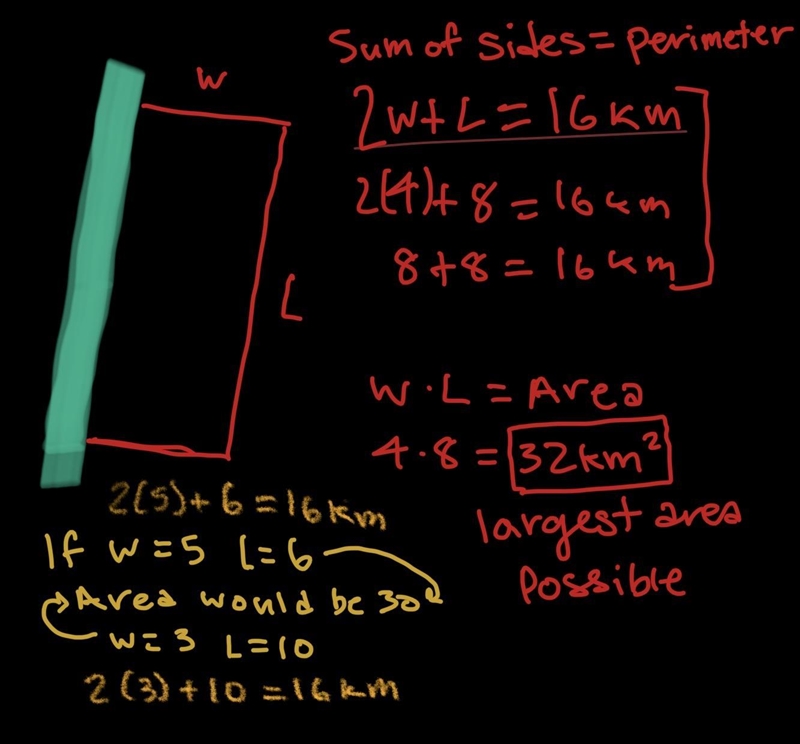 Sum of sides = perimeter
W
2W + L = 16 km
2(4) + 8 = 16 km
8 + 8 = 16 km
L
W · L = Area
4 · 8 = 32 km²
largest area
possible
2(5) + 6 = 16 km
If W = 5 L = 6
Area would be 30
W = 3 L = 10
2(3) + 10 = 16 km